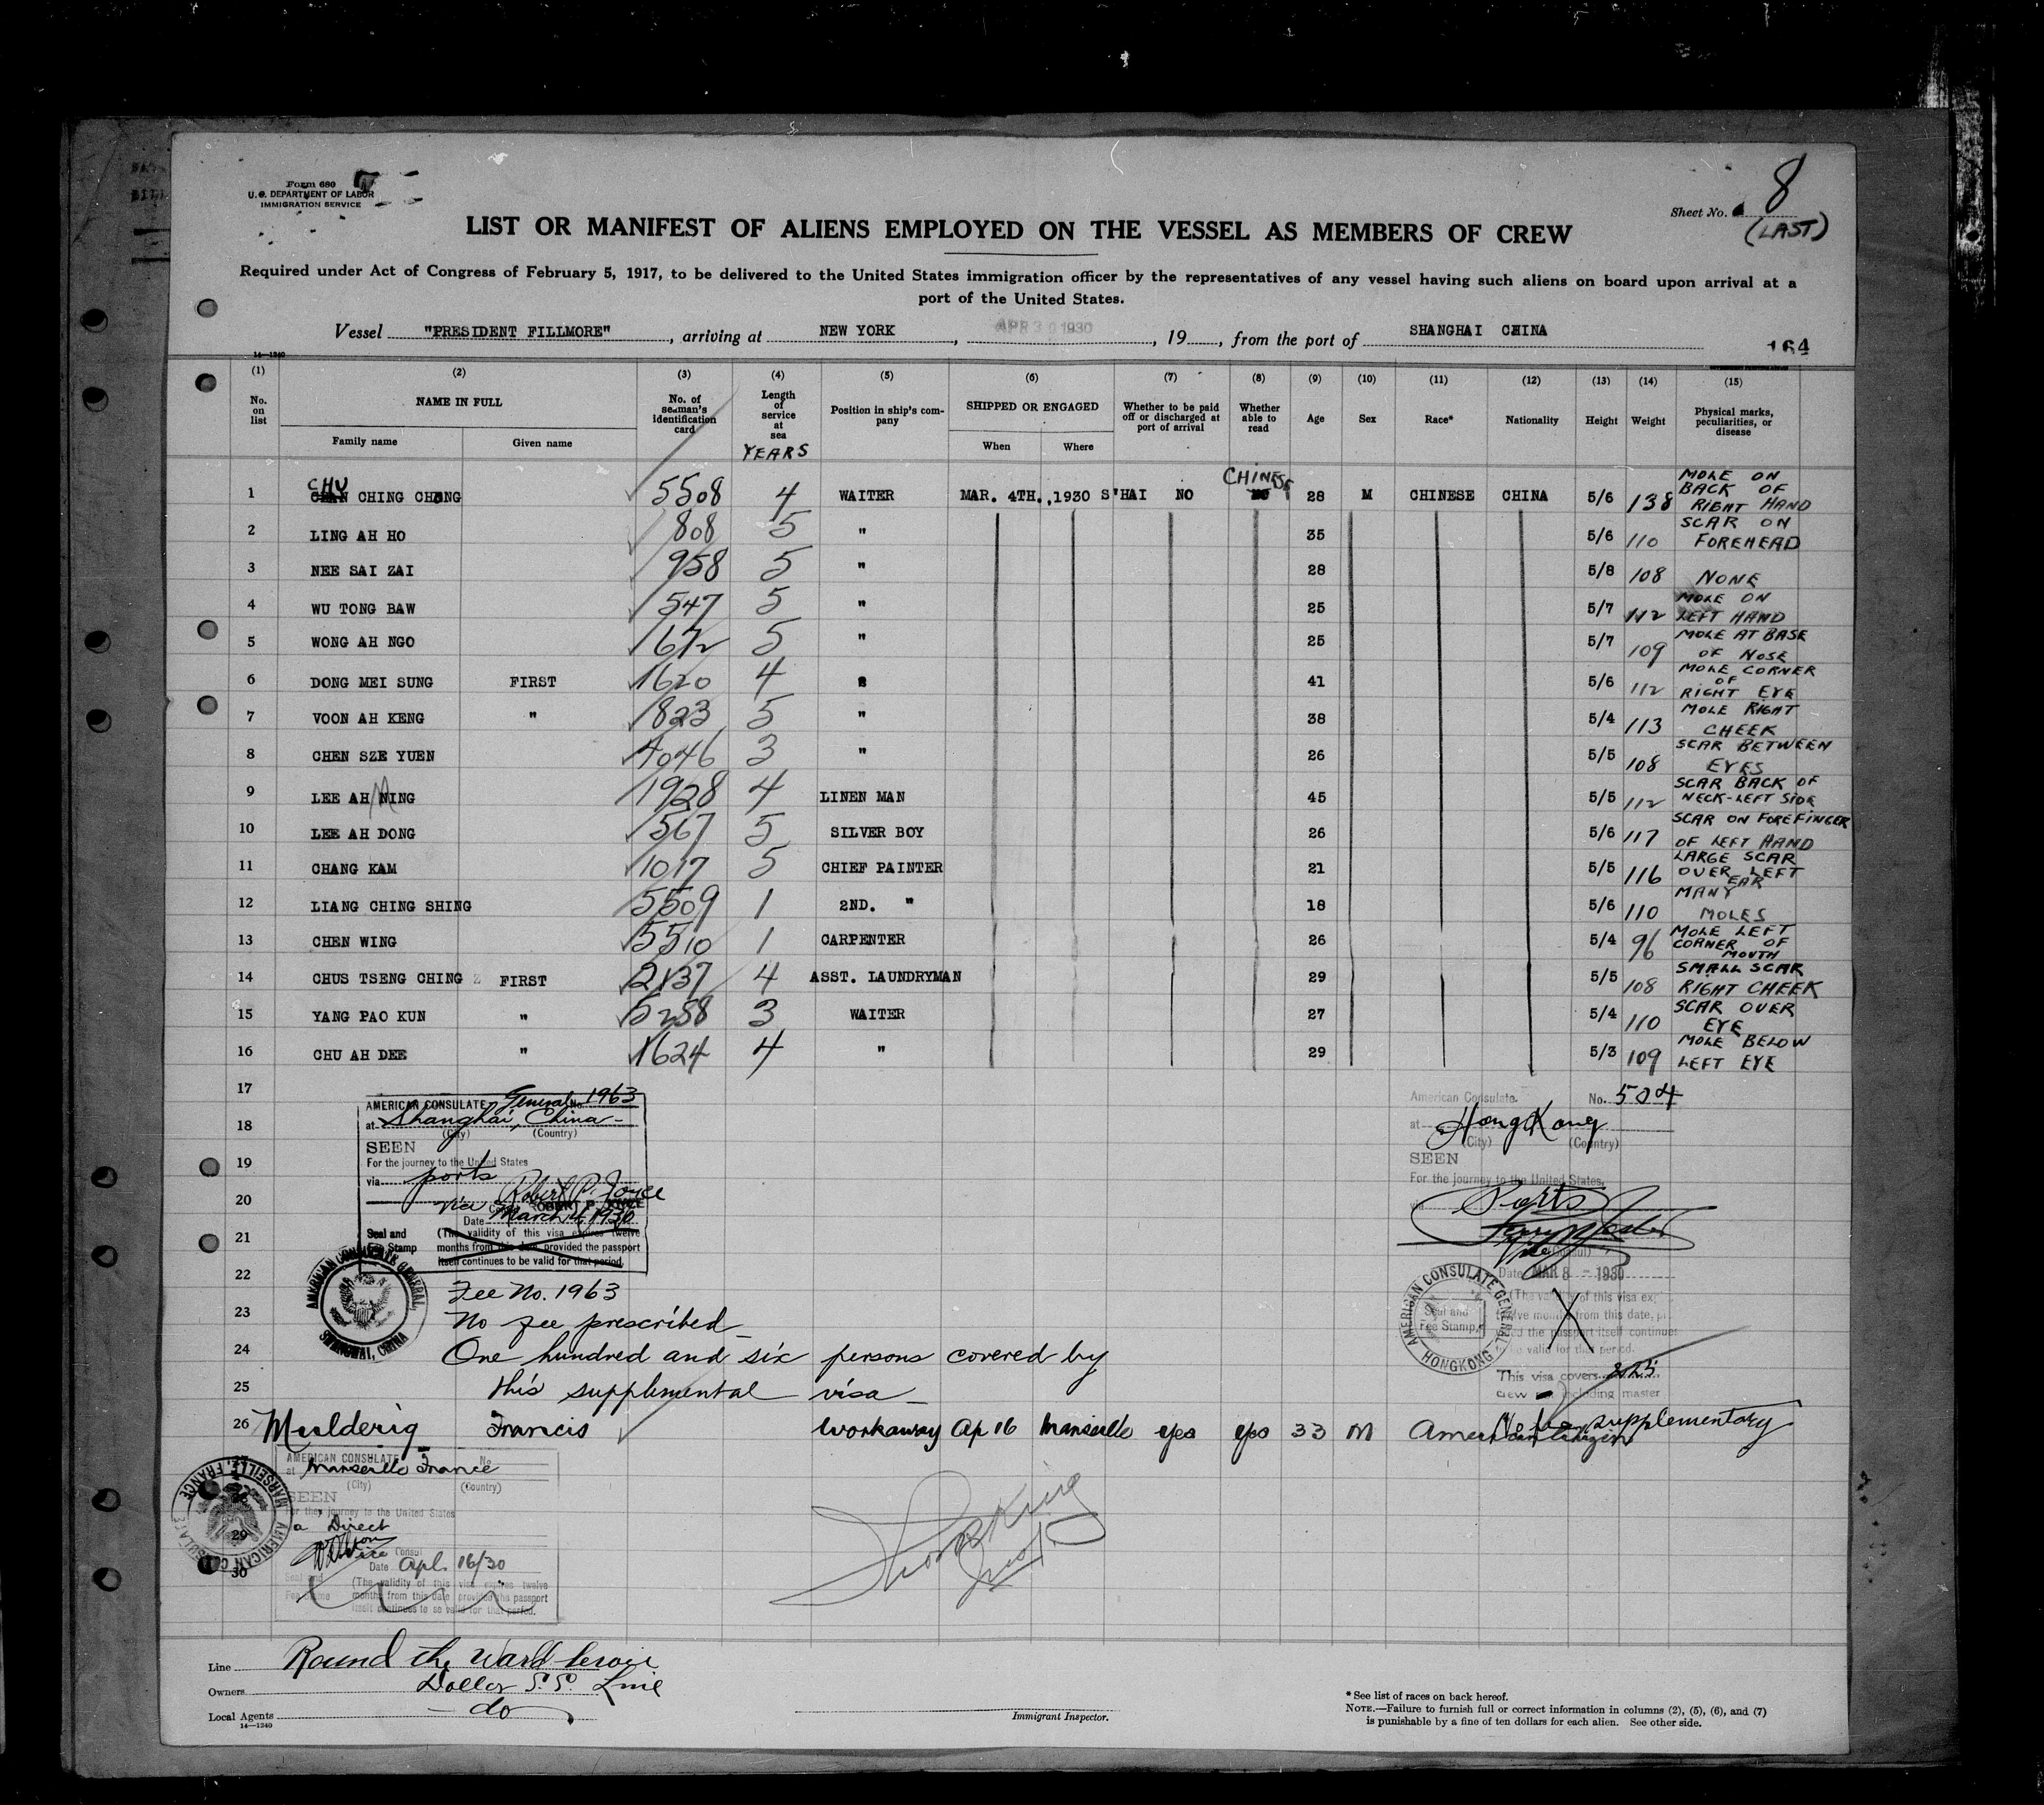 Form 680
U. S. DEPARTMENT OF LABOR
IMMIGRATION SERVICE
Sheet No. 8
(LAST)
LIST OR MANIFEST OF ALIENS EMPLOYED ON THE VESSEL AS MEMBERS OF CREW
Required under Act of Congress of February 5, 1917, to be delivered to the United States immigration officer by the representatives of any vessel having such aliens on board upon arrival at a
port of the United States.
Vessel "PRESIDENT FILLMORE", arriving at NEW YORK, APR 30 1930, 19, from the port of SHANGHAI CHINA
164
14—1240
(1) (2) (3) (4) (5) (6) (7) (8) (9) (10) (11) (12) (13) (14) (15)
No. on list NAME IN FULL Family name Given name No. of seaman's identification card Length of service at sea YEARS Position in ship's company SHIPPED OR ENGAGED When Where Whether to be paid off or discharged at port of arrival Whether able to read Age Sex Race* Nationality Height Weight Physical marks, peculiarities, or disease
1 CHU CHING CHONG 5508 4 WAITER MAR. 4TH.,1930 S'HAI NO CHINESE 28 M CHINESE CHINA 5/6 138 MOLE ON BACK OF RIGHT HAND
2 LING AH HO 808 5 " 35 5/6 110 SCAR ON FOREHEAD
3 NEE SAI ZAI 958 5 " 28 5/8 108 NONE
4 WU TONG BAW 547 5 " 25 5/7 112 MOLE ON LEFT HAND
5 WONG AH NGO 1672 5 " 25 5/7 109 MOLE AT BASE OF NOSE
6 DONG MEI SUNG FIRST 1620 4 " 41 5/6 112 MOLE CORNER OF RIGHT EYE
7 VOON AH KENG " 1823 5 " 38 5/4 113 MOLE RIGHT CHEEK
8 CHEN SZE YUEN 4046 3 " 26 5/5 108 SCAR BETWEEN EYES
9 LEE AH NING 1928 4 LINEN MAN 45 5/5 112 SCAR BACK OF NECK-LEFT SIDE
10 LEE AH DONG 567 5 SILVER BOY 26 5/6 117 SCAR ON FOREFINGER OF LEFT HAND
11 CHANG KAM 1017 5 CHIEF PAINTER 21 5/5 116 LARGE SCAR OVER LEFT EAR
12 LIANG CHING SHING 5509 1 2ND. " 18 5/6 110 MANY MOLES
13 CHEN WING 5510 1 CARPENTER 26 5/4 96 MOLE LEFT CORNER OF MOUTH
14 CHUS TSENG CHING FIRST 2137 4 ASST. LAUNDRYMAN 29 5/5 108 SMALL SCAR RIGHT CHEEK
15 YANG PAO KUN " 5258 3 WAITER 27 5/4 110 SCAR OVER EYE
16 CHU AH DEE " 1624 4 " 29 5/3 109 MOLE BELOW LEFT EYE
17
18
19
20
21
22
23
24
25
AMERICAN CONSULATE General No. 1963
at Shanghai, China
(City) (Country)
SEEN
For the journey to the United States
via ports
Robert P. Joyce
Vice
Date March 4, 1930
Seal and Fee Stamp
(The validity of this visa expires twelve
months from this date, provided the passport
itself continues to be valid for that period.
AMERICAN CONSULATE GENERAL, SHANGHAI, CHINA
Fee No. 1963
No fee prescribed
One hundred and six persons covered by
this supplemental visa
American Consulate. No. 504
at Hong Kong
(City) (Country)
SEEN
For the journey to the United States,
via Ports
Vice (Consul)
Date MAR 8 - 1930
(The validity of this visa
from this date,
the passport itself continues
valid for that period.
AMERICAN CONSULATE GENERAL HONGKONG
Seal and Fee Stamp
This visa covers
crew including master
supplementary
26 Mulderig Francis Workaway Ap 16 Marseille yes yes 33 M American Citizen
AMERICAN CONSULATE No.
at Marseille France
(City) (Country)
SEEN
For the journey to the United States
a Direct
Vice Consul
Date Apl. 16/30
Seal and Fee Stamp
(The validity of this visa expires twelve
months from this date provided the passport
itself continues to be valid for that period.
AMERICAN CONSULATE MARSEILLE, FRANCE
29
30
Line Round the World Service
Owners Dollar S.S. Line
Local Agents do
14—1240
Immigrant Inspector.
*See list of races on back hereof.
NOTE.—Failure to furnish full or correct information in columns (2), (5), (6), and (7)
is punishable by a fine of ten dollars for each alien. See other side.